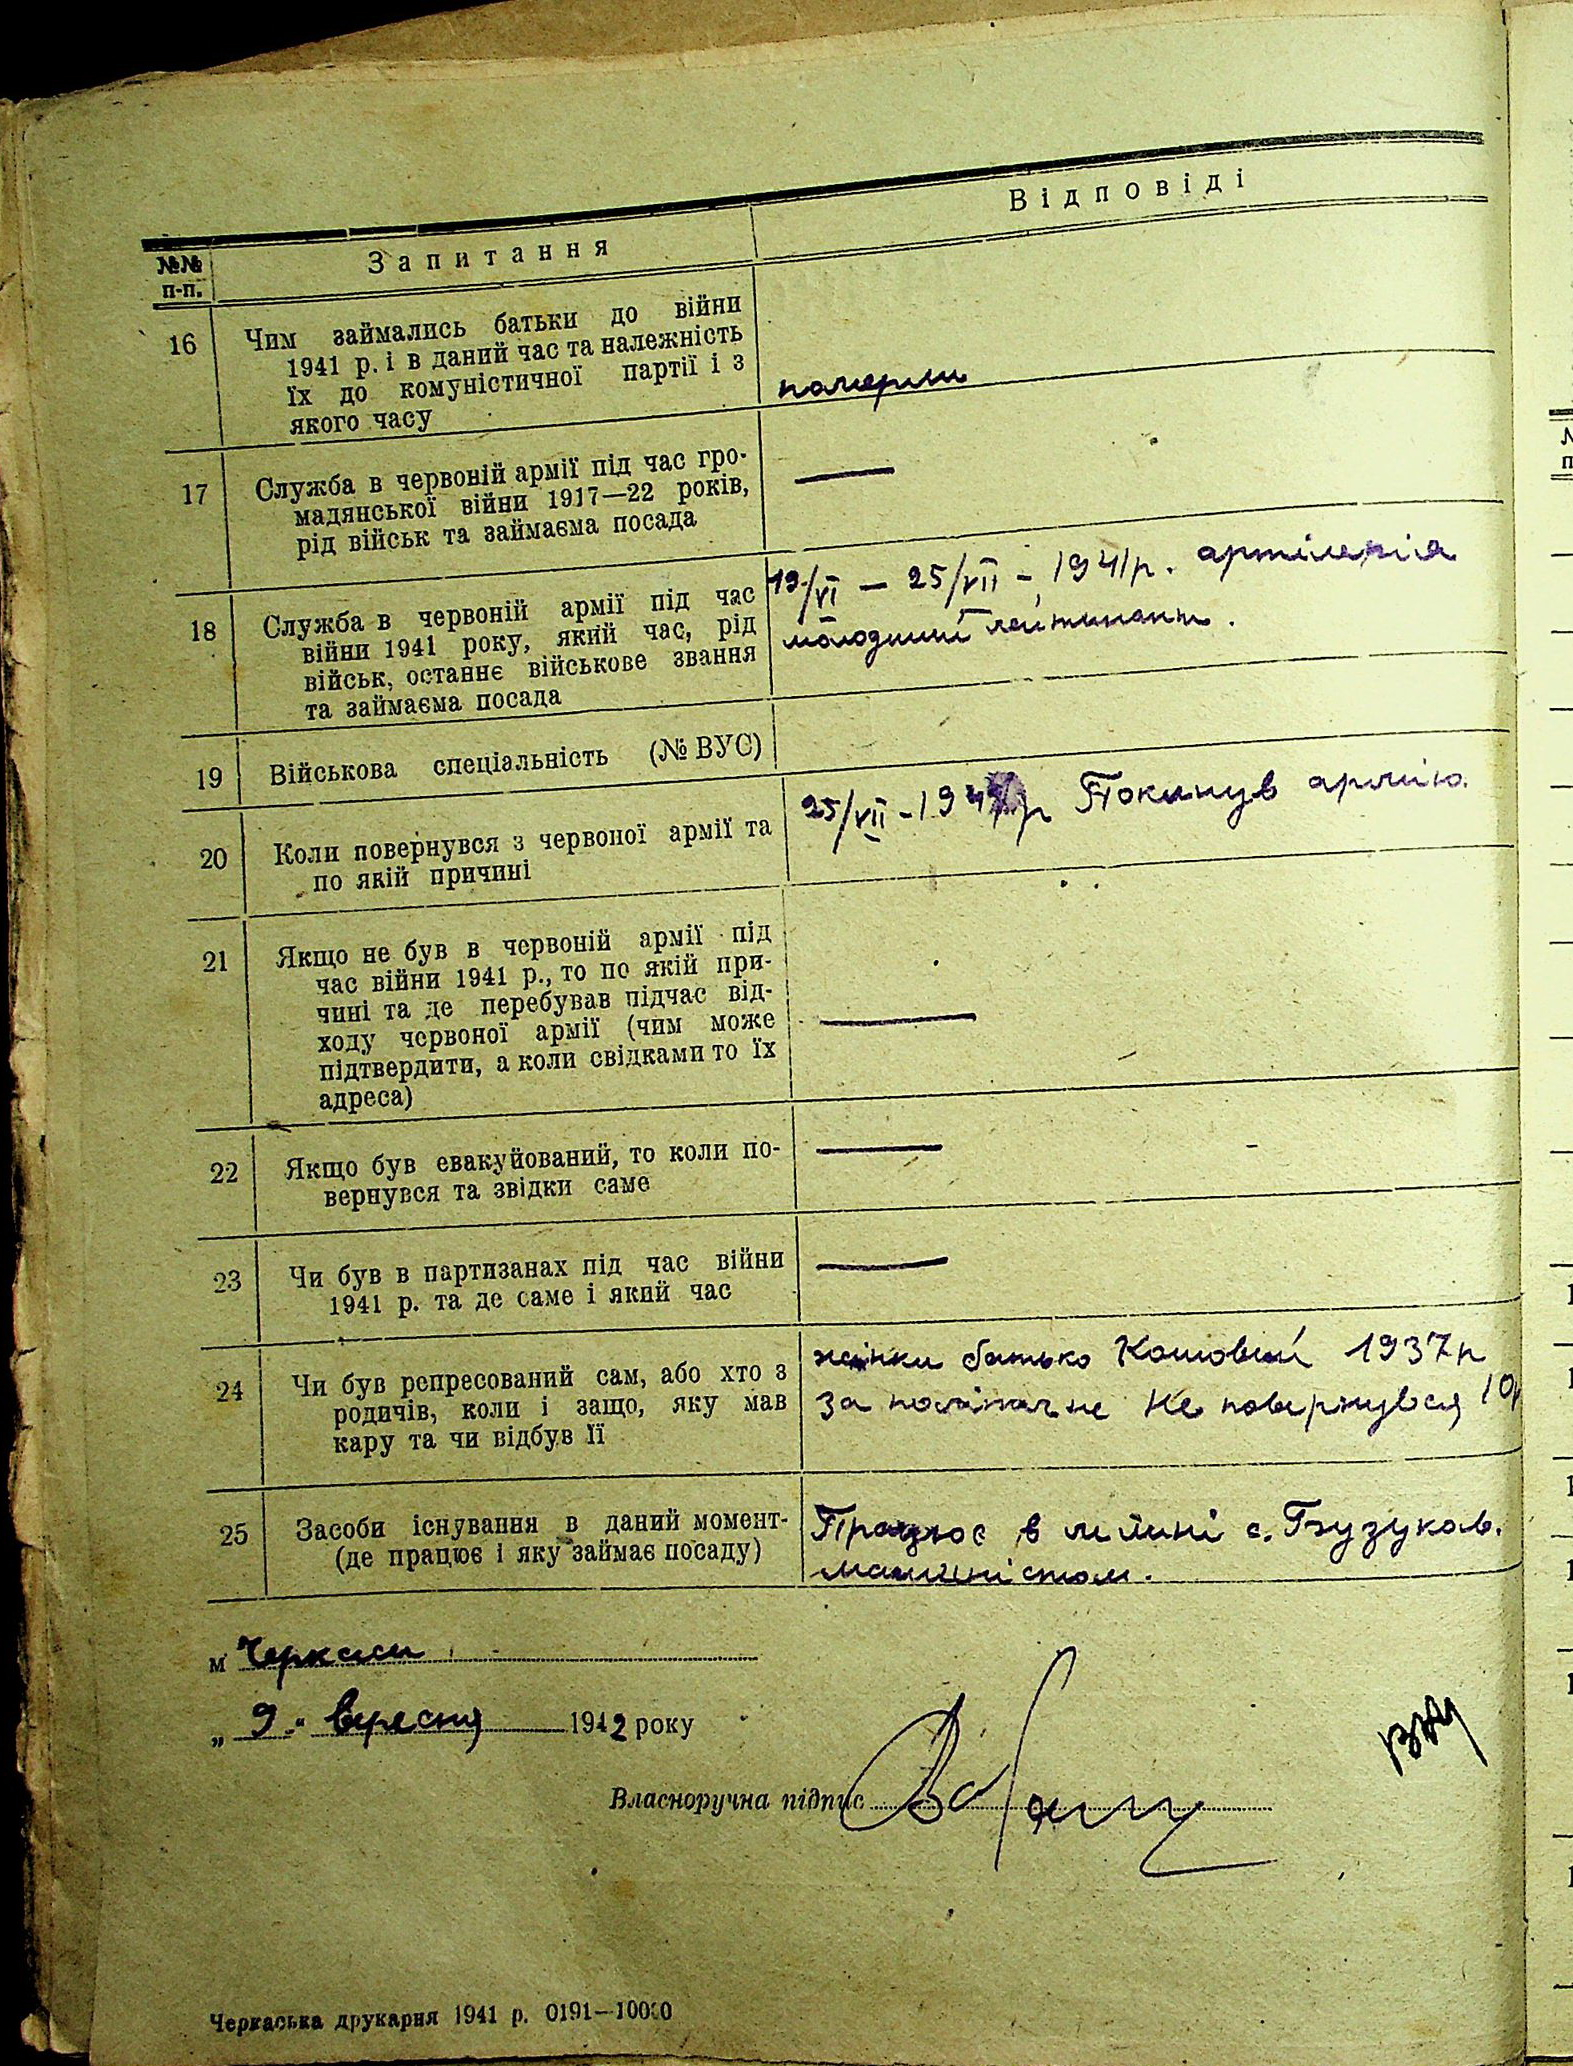 №№ п-п.
Запитання
Відповіді
16
Чим займались батьки до війни
1941 р. і в даний час та належність
їх до комуністичної партії і з
якого часу
померли
17
Служба в червоній армії під час гро-
мадянської війни 1917—22 років,
рід військ та займаєма посада
—
18
Служба в червоній армії під час
війни 1941 року, який час, рід
військ, останнє військове звання
та займаєма посада
19/VI — 25/VII - 1941р. артілерія
молодший лейтинант.
19
Військова спеціальність (№ ВУС)
20
Коли повернувся з червоної армії та
по якій причині
25/VII - 1941р Покинув армію.
21
Якщо не був в червоній армії під
час війни 1941 р., то по якій при-
чині та де перебував підчас від-
ходу червоної армії (чим може
підтвердити, а коли свідками то їх
адреса)
—
22
Якщо був евакуйований, то коли по-
вернувся та звідки саме
—
23
Чи був в партизанах під час війни
1941 р. та де саме і який час
—
24
Чи був репресований сам, або хто з
родичів, коли і защо, яку мав
кару та чи відбув її
жінки батько Кошовий 1937р
за не повернувся 10р
25
Засоби існування в даний момент-
(де працює і яку займає посаду)
Працює в млині с. Бузуков.
машиністом.
м Черкаси
„ 9 " вересня 1942 року
Власноручна підпис
Черкаська друкарня 1941 р. 0191—10000